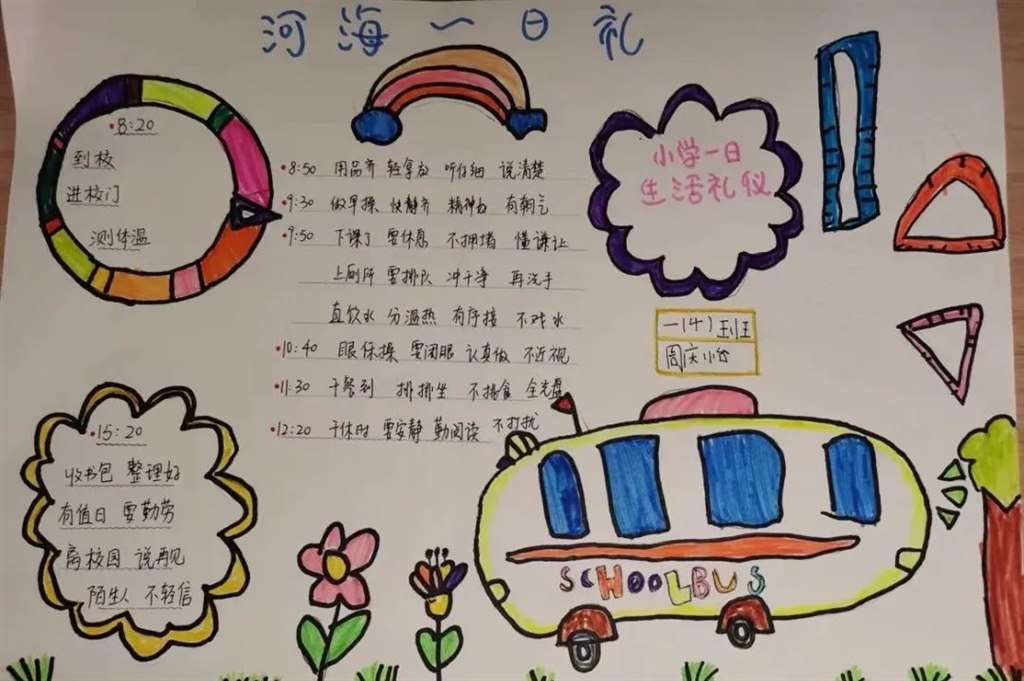 河海一日礼
8:20
到校
进校门
测体温
8:50 用品齐 轻拿放 听仔细 说清楚
9:30 做早操 快静齐 精神力 有朝气
9:50 下课了 要休息 不拥堵 懂谦让
上厕所 要排队 冲干净 再洗手
直饮水 分温热 有序接 不戏水
10:40 眼保操 要闭眼 认真做 不近视
11:30 午餐到 排排坐 不挑食 全光盘
12:20 午休时 要安静 勤阅读 不打扰
小学一日
生活礼仪
一(4)班
周庆
15:20
收书包 整理好
有值日 要勤劳
离校园 说再见
陌生人 不轻信
SCHOOLBUS